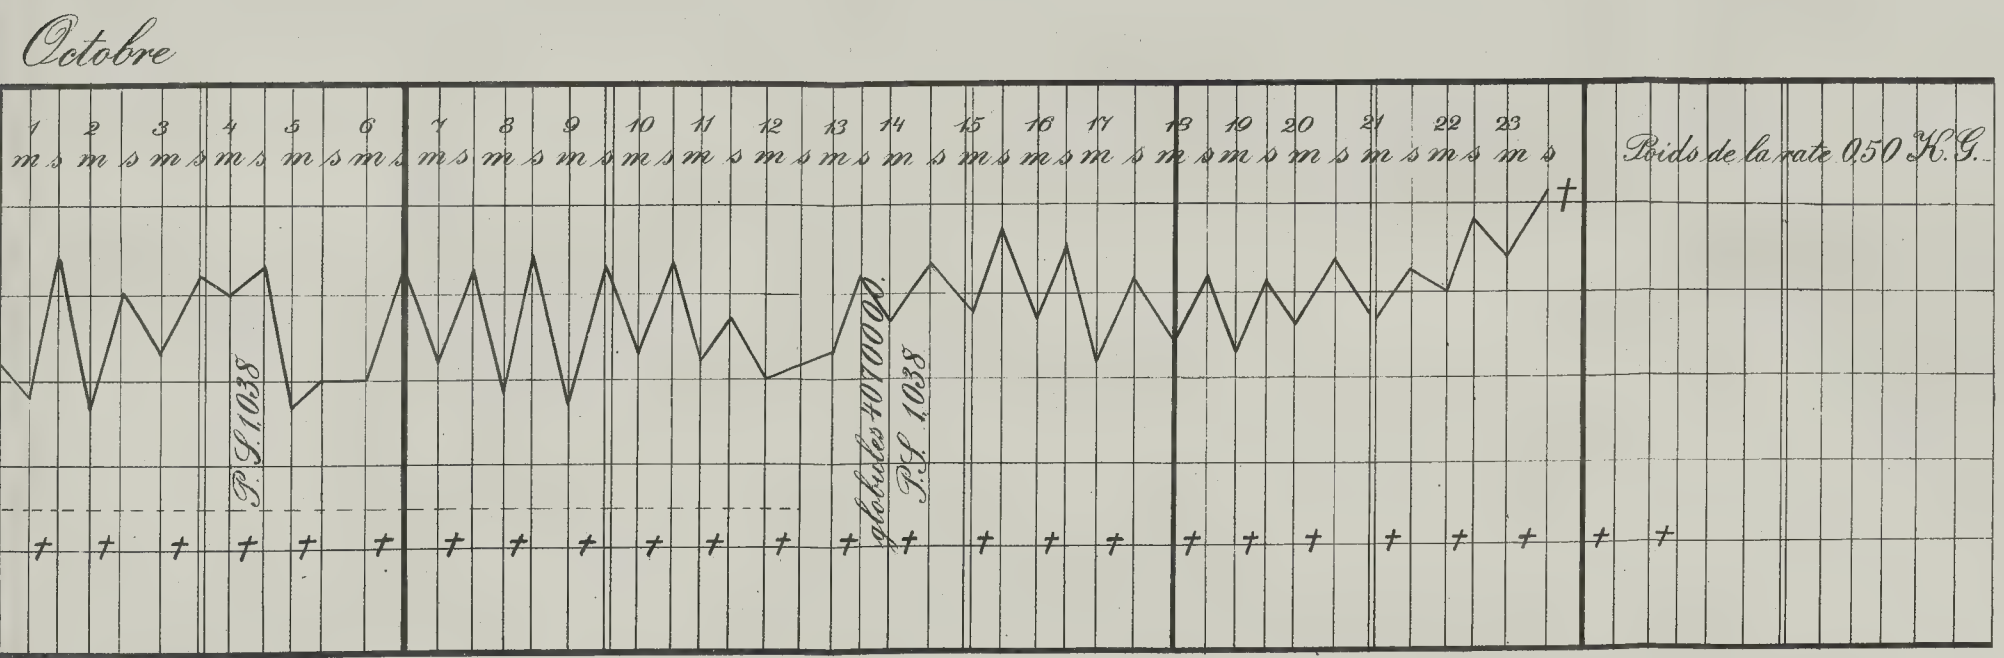 Octobre
1 2 3 4 5 6 7 8 9 10 11 12 13 14 15 16 17 18 19 20 21 22 23
m s m s m s m s m s m s m s m s m s m s m s m s m s m s m s m s m s m s m s m s m s m s m s
Poids de la rate 0.50 K.G.
†
P.S. 1.038
globules 4070000.
P.S. 1.038
† † † † † † † † † † † † † † † † † † † † † † † † †